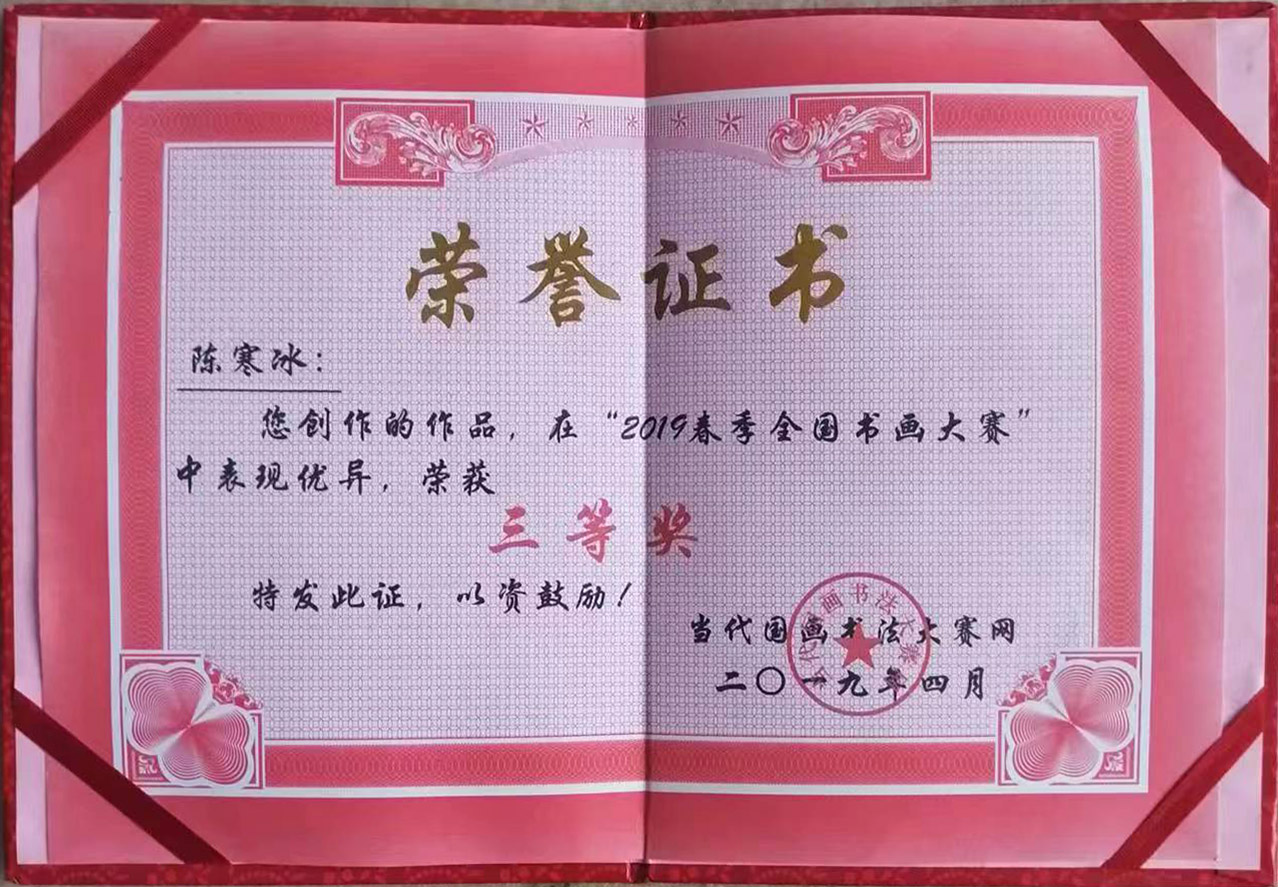 荣誉证书
陈寒冰：
您创作的作品，在“2019春季全国书画大赛”
中表现优异，荣获
三等奖
特发此证，以资鼓励！
当代国画书法大赛网
二〇一九年四月